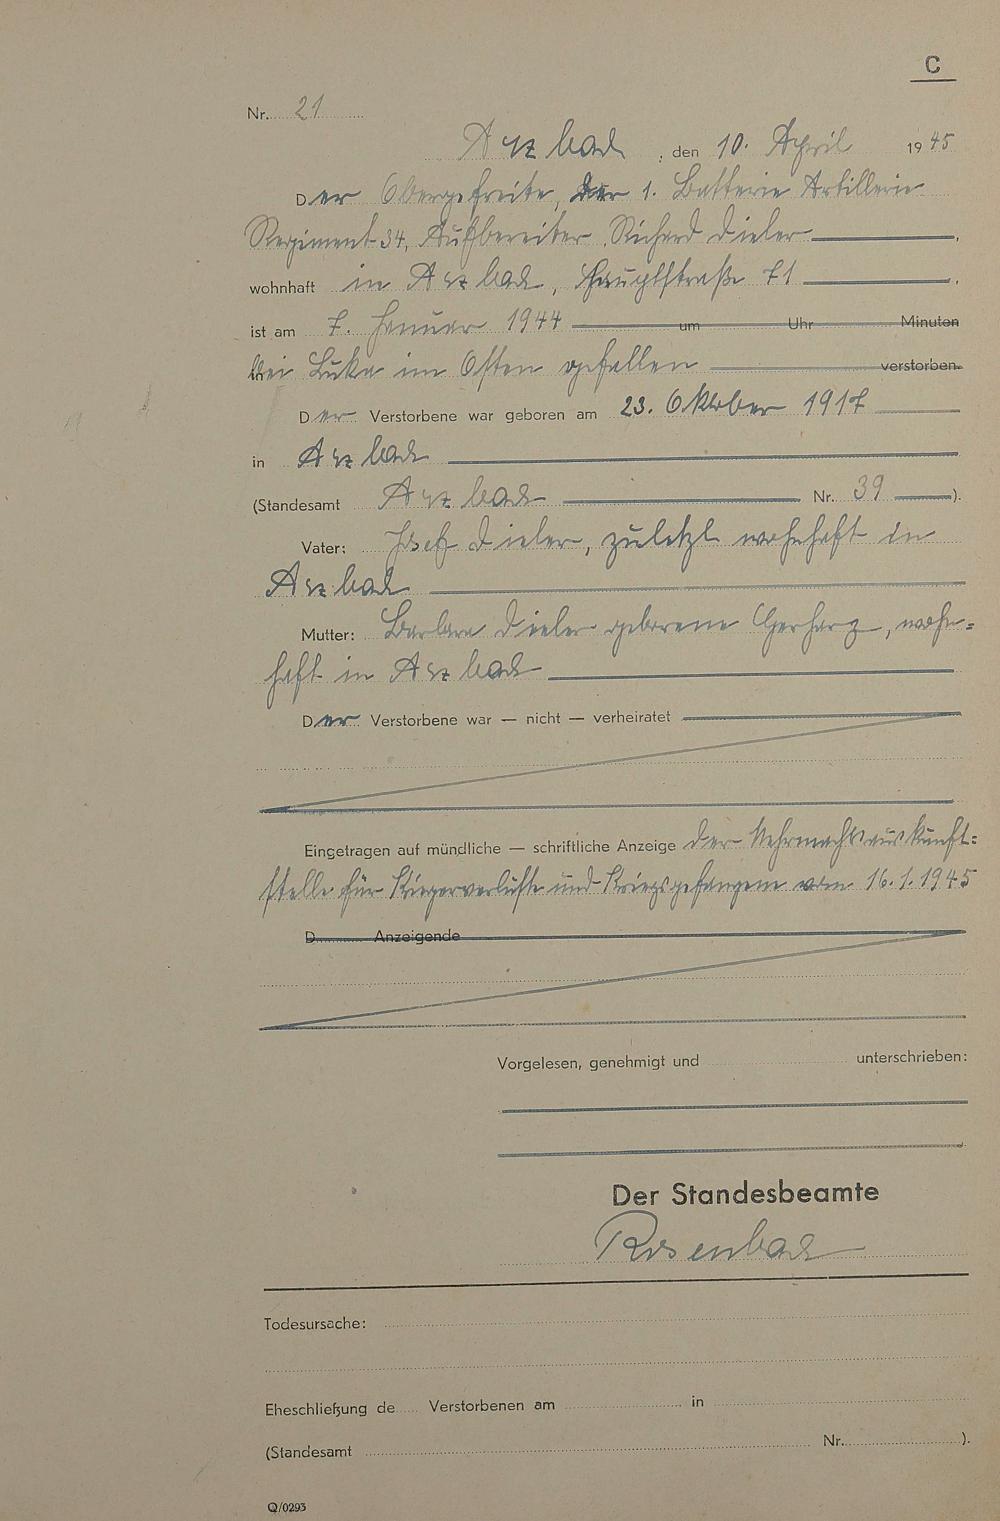 C
Nr. 21
Arzbach, den 10. April 1945
Der Obergefreite, der 1. Batterie Artillerie
Regiment 34, Aufbereiter Richard Dieler
wohnhaft in Arzbach, Hauptstraße 71
ist am 7. Januar 1944 um Uhr Minuten
bei Luka im Osten gefallen verstorben.
Der Verstorbene war geboren am 23. Oktober 1917
in Arzbach
(Standesamt Arzbach Nr. 39 ).
Vater: Josef Dieler, zuletzt wohnhaft in
Arzbach
Mutter: Barbara Dieler geborene Gerharz, wohn=
haft in Arzbach
Der Verstorbene war — nicht — verheiratet
Eingetragen auf mündliche — schriftliche Anzeige der Wehrmachtsauskunft=
stelle für Kriegerverluste und Kriegsgefangene vom 16.1.1945
D Anzeigende
Vorgelesen, genehmigt und unterschrieben:
Der Standesbeamte
Rosenbach
Todesursache:
Eheschließung de Verstorbenen am in
(Standesamt Nr. ).
Q/0293